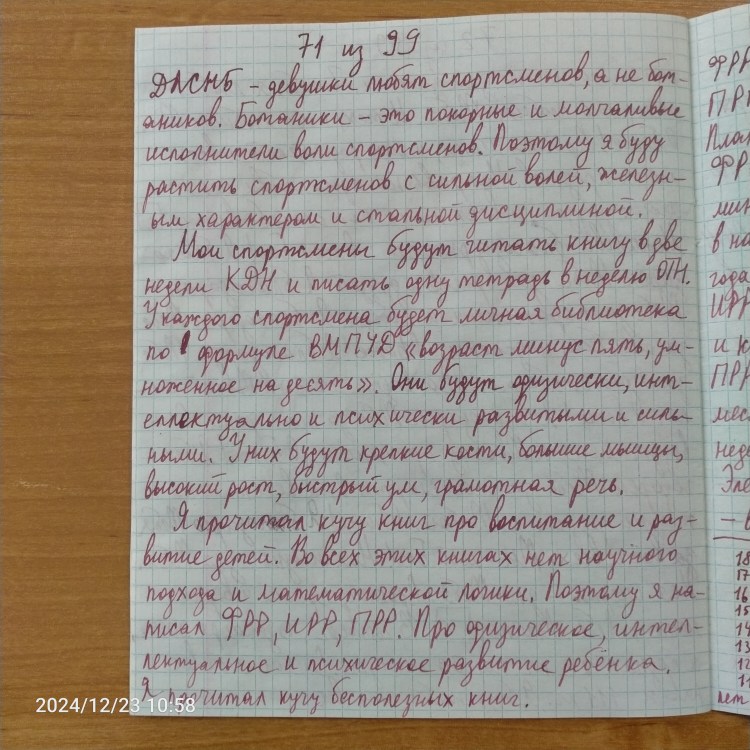 71 из 99
ДЛСНБ – девушки любят спортсменов, а не бот-
аников. Ботаники – это покорные и молчаливые
исполнители воли спортсменов. Поэтому я буду
растить спортсменов с сильной волей, железн-
ым характером и стальной дисциплиной.
Мои спортсмены будут читать книгу в две
недели КДН и писать одну тетрадь в неделю ОТН.
У каждого спортсмена будет личная библиотека
по формуле ВМПУД «возраст минус пять, ум-
ноженное на десять». Они будут физически, инт-
еллектуально и психически развитыми и силь-
ными. У них будут крепкие кости, большие мышцы,
высокий рост, быстрый ум, грамотная речь.
Я прочитал кучу книг про воспитание и раз-
витие детей. Во всех этих книгах нет научного
подхода и математической логики. Поэтому я на-
писал ФРР, ИРР, ПРР. Про физическое, интел-
лектуальное и психическое развитие ребёнка.
Я прочитал кучу бесполезных книг.
ФРР
ПРР
План
ФР
мин
в на
года
ИРР
и к
ПРР
мес
неде
Эле
18
17
16
15
14
13
12
11
лет
2024/12/23 10:58